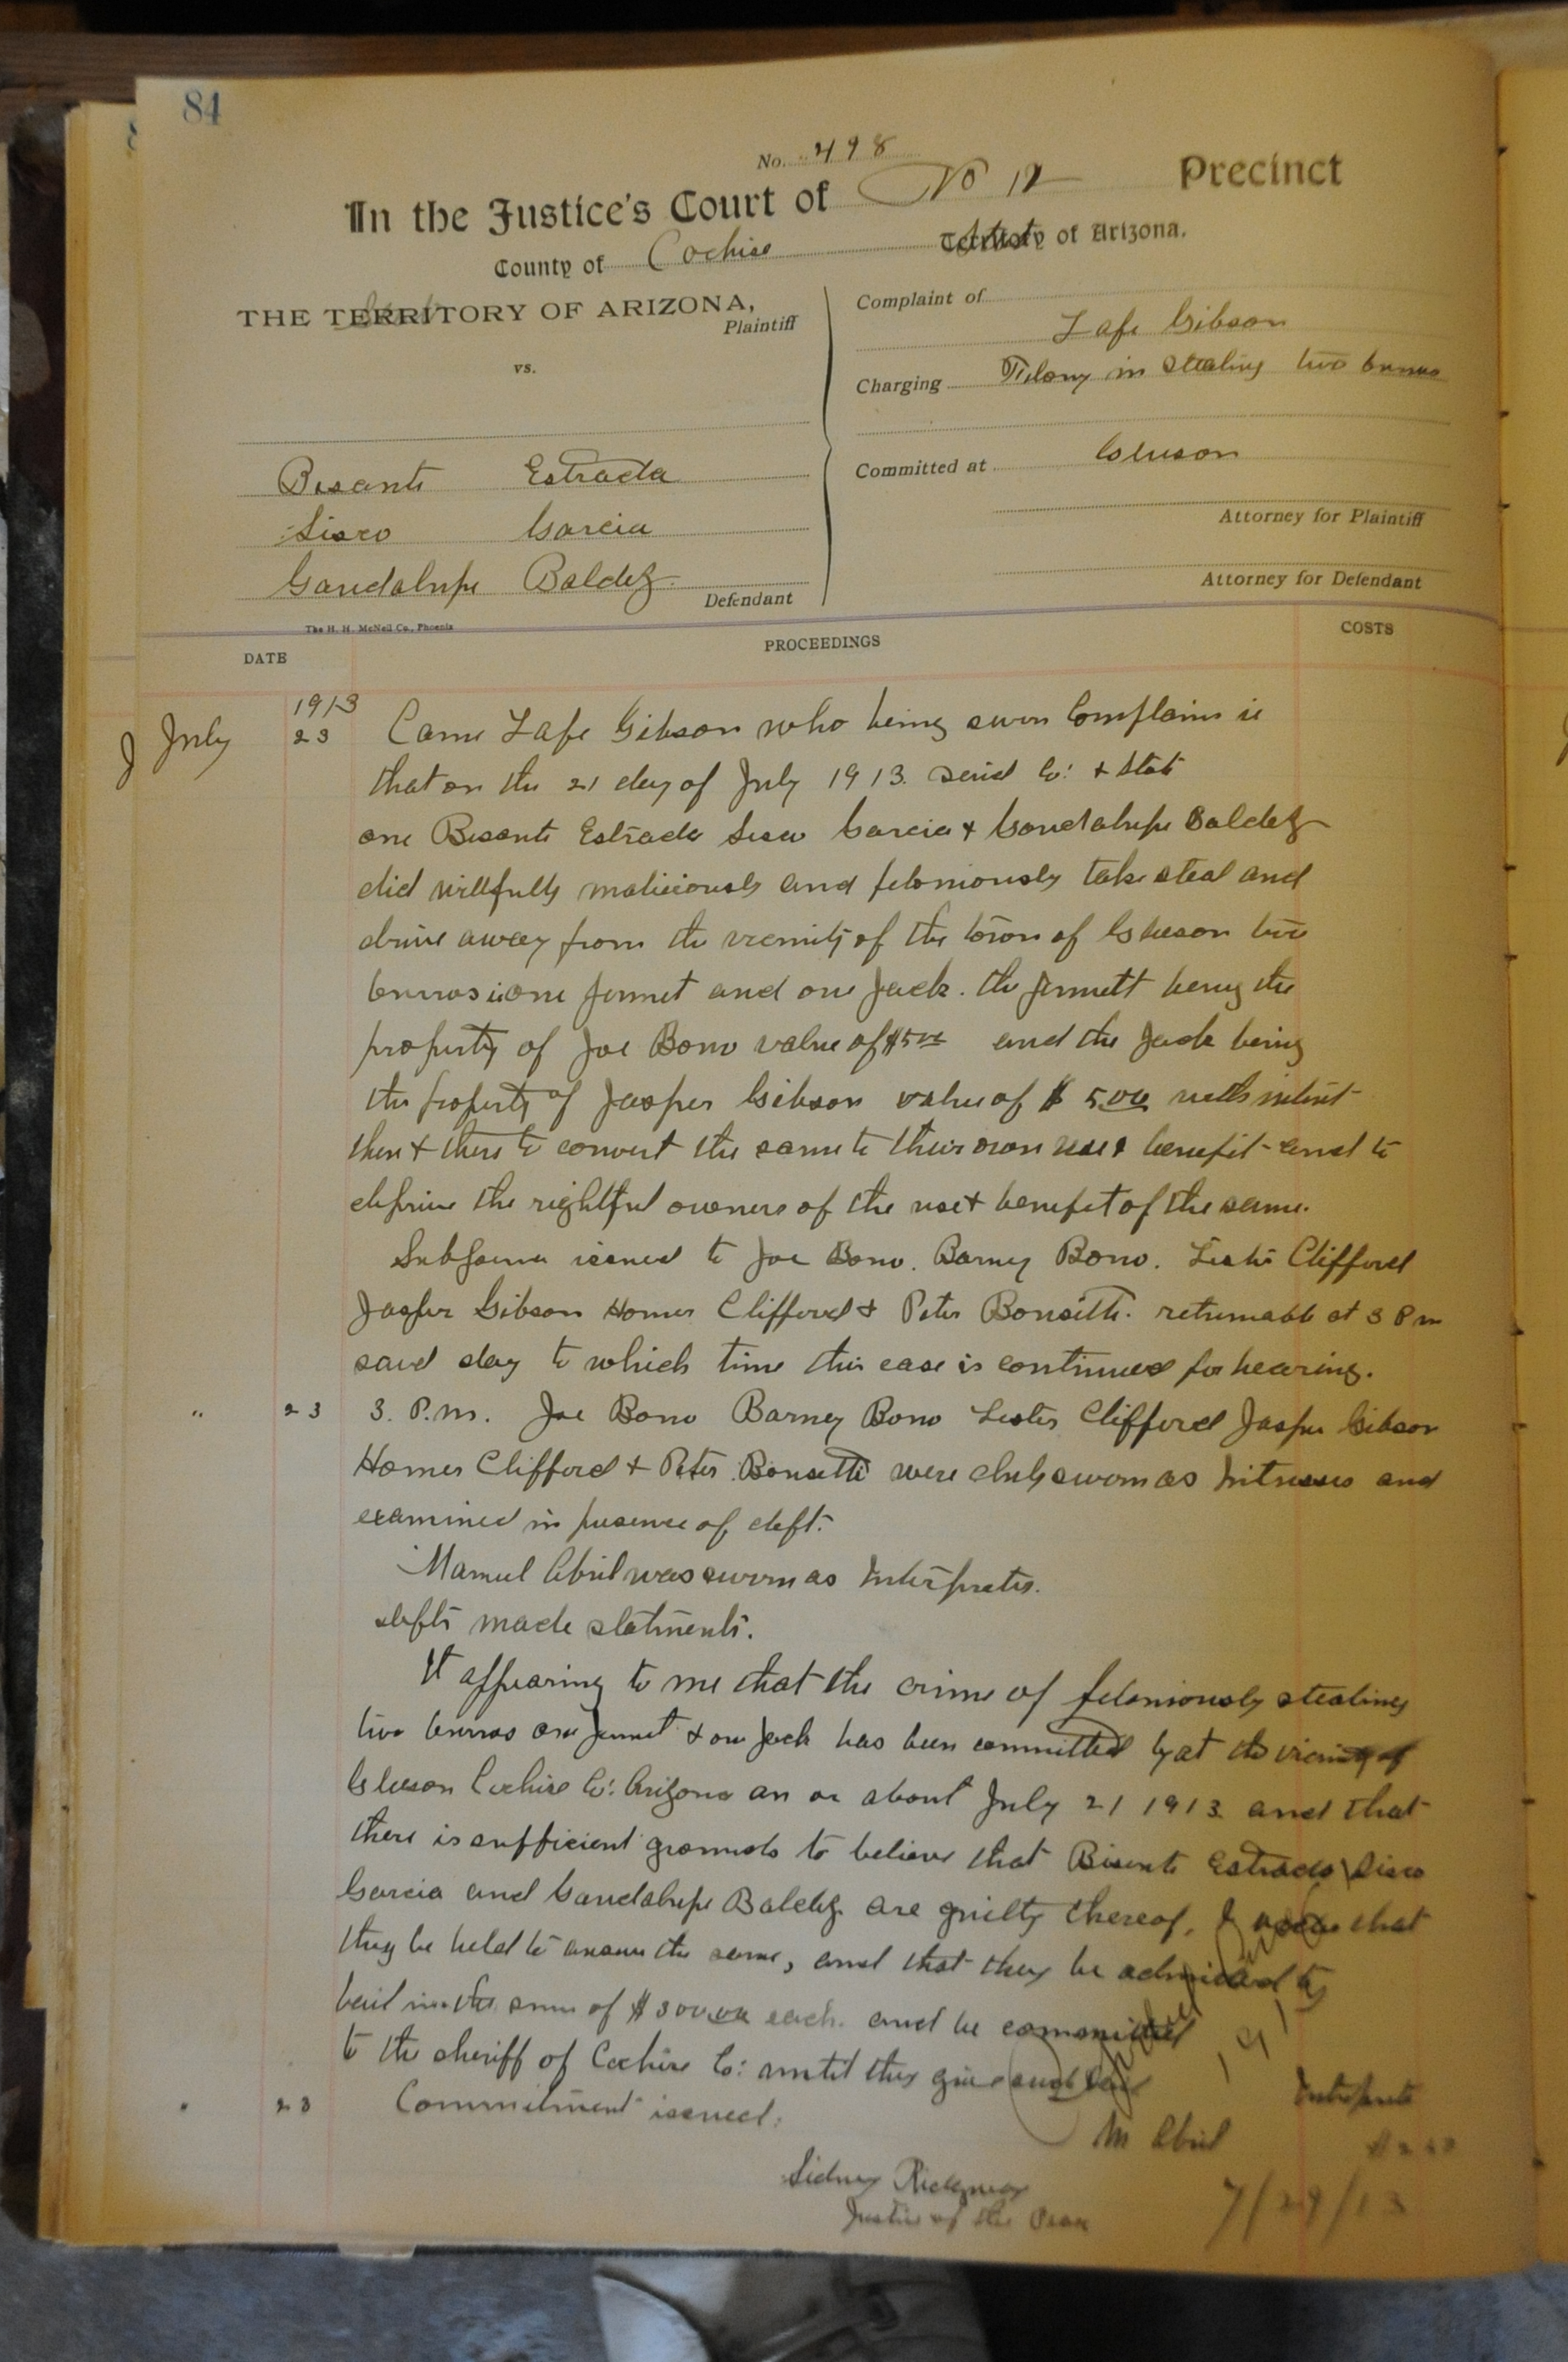 84
No. 498
In the Justice's Court of No 12 Precinct
County of Cochise State of Arizona.
THE TERRITORY OF ARIZONA,
Plaintiff
vs.
Besante Estrada
Sisco Garcia
Gaudalupe Baldez
Defendant
Complaint of
Lafe Gibson
Charging Felony in Stealing two burros
Committed at Gleeson
Attorney for Plaintiff
Attorney for Defendant
The H. H. McNeil Co., Phoenix
DATE PROCEEDINGS COSTS
1913
July 23 Came Lafe Gibson who being sworn Complains is
that on the 21 day of July 1913. said Co: & State
one Besante Estrada Sisco Garcia & Gaudalupe Baldez
did willfully maliciously and feloniously take steal and
drive away from the vicinity of the town of Gleeson two
burros i one Jennet and one Jack. the Jennett being the
property of Joe Bono value of $5 00 and the Jack being
the property of Jasper Gibson value of $ 5.00 with intent
then & there to convert the same to their own use & benefit and to
deprive the rightful owners of the use & benefit of the same.
Subpoena issued to Joe Bono. Barney Bono. Lester Clifford
Jasper Gibson Homer Clifford & Peter Bonsetti. returnable at 3 Pm
said day to which time this case is continued for hearing.
" 23 3. P.m. Joe Bono Barney Bono Lester Clifford Jasper Gibson
Homer Clifford & Peter Bonsetti were duly sworn as Witnesses and
examined in presence of deft.
Manuel Abril was sworn as Interpreter.
defts made statments.
It appearing to me that the crime of feloniously stealing
two burros one Jennet & one Jack has been committed at the vicinity of
Gleeson Cochise Co: Arizona on or about July 21 1913 and that
there is sufficient grounds to believe that Bisente Estrada Sisco
Garcia and Gaudalupe Baldez are guilty thereof, I order that
they be held to answer the same, and that they be admitted to
bail in the sum of $300.00 each. and be committed
to the sheriff of Cochise Co: until they give such bail
" 23 Commitment issued.
Interpreter
M Abril
Sidney Ridgway
Justice of the Peace
7/29/13